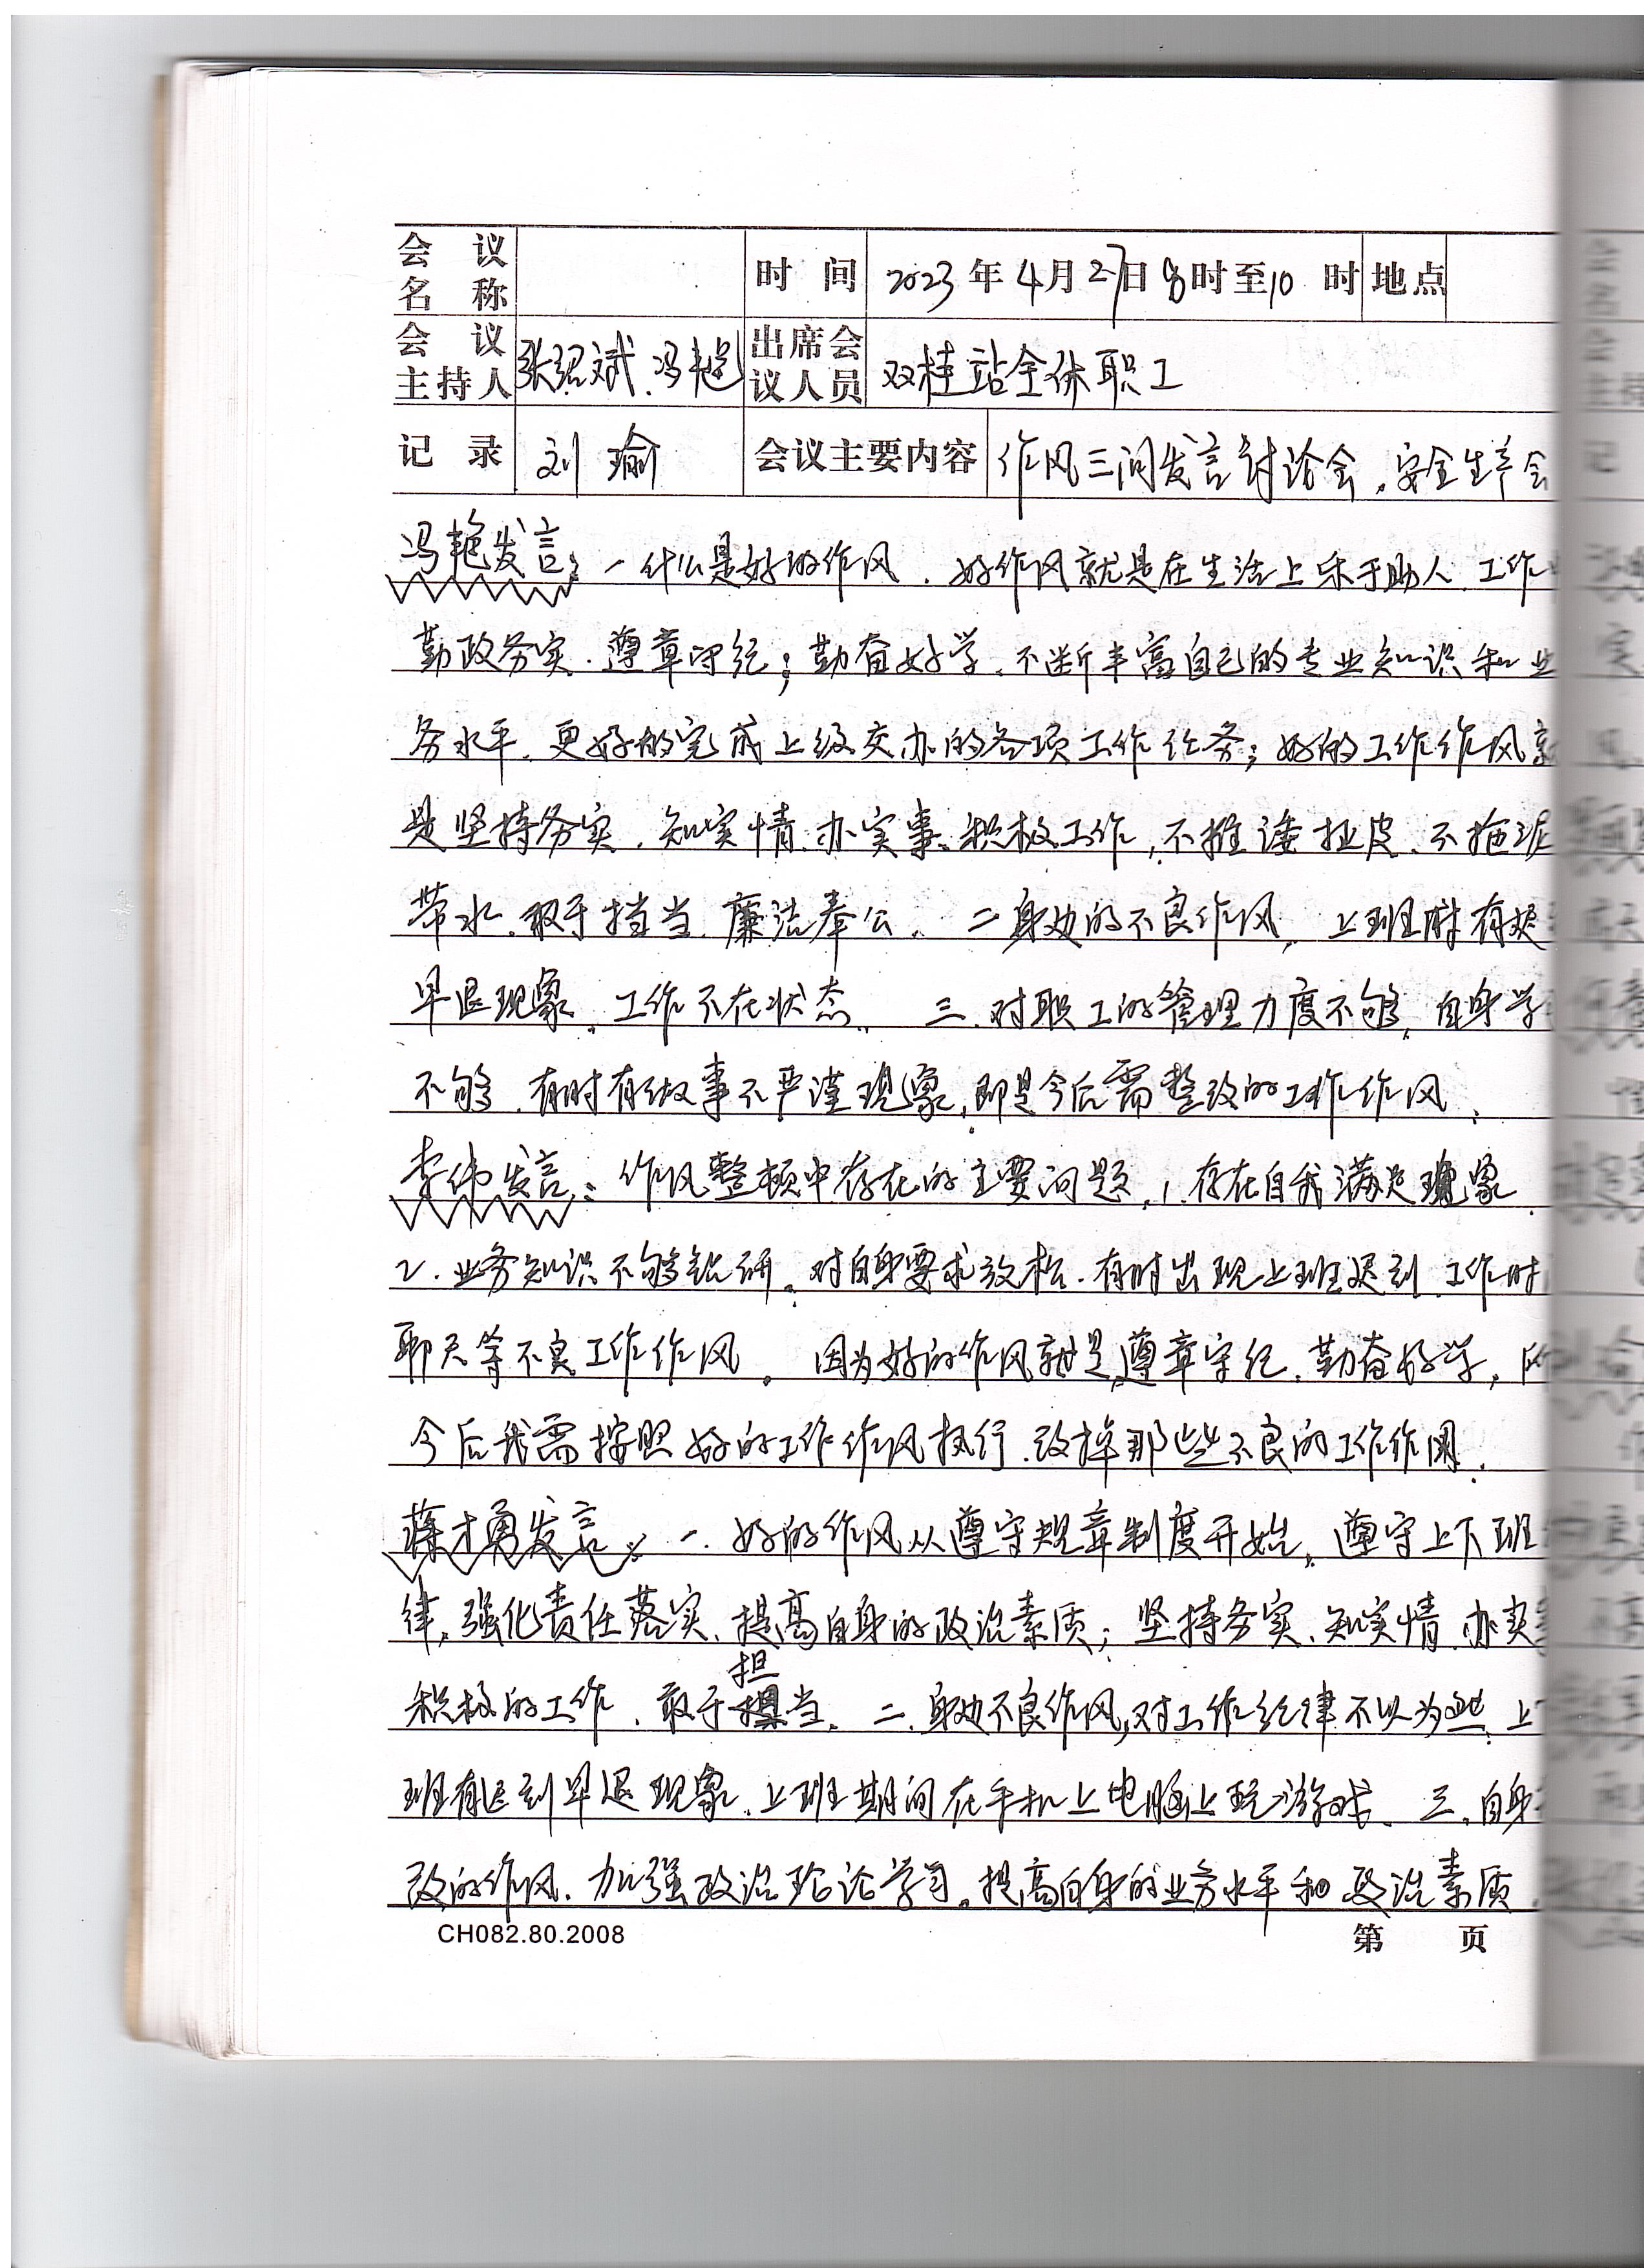 会议名称 时间 2023年4月27日8时至10时 地点
会议主持人 张绍斌、冯艳 出席会议人员 双桂站全体职工
记录 刘瑜 会议主要内容 作风三问发言讨论会,安全生产会
冯艳发言:一什么是好的作风、好作风就是在生活上乐于助人、工作
勤政务实、遵章守纪;勤奋好学、不断丰富自己的专业知识和业
务水平、更好的完成上级交办的各项工作任务;好的工作作风就
是坚持务实、知实情、办实事、积极工作,不推诿扯皮、不拖泥
带水、敢于挡当、廉洁奉公。 二身边的不良作风, 上班时有迟
早退现象、工作不在状态。 三、对职工的管理力度不够,自身学
不够、有时有做事不严谨现象,即是今后需整改的工作作风、
李伟发言:作风整顿中存在的主要问题、1、存在自我满足现象、
2、业务知识不够钻研。对自身要求放松、有时出现上班迟到、工作时
聊天等不良工作作风。 因为好的作风就是,遵章守纪、勤奋好学,
今后我需按照好的工作作风执行、改掉那些不良的工作作风、
蒋才勇发言:一、好的作风从遵守规章制度开始,遵守上下班
律,强化责任落实、提高自身的政治素质;坚持务实、知实情、办实
积极的工作、敢于担当、二、身边不良作风,对工作纪律不以为然、上
班有迟到早退现象、上班期间在手机上电脑上玩游戏、三、自身
改的作风、加强政治理论学习、提高自身的业务水平和政治素质、
CH082.80.2008 第 页